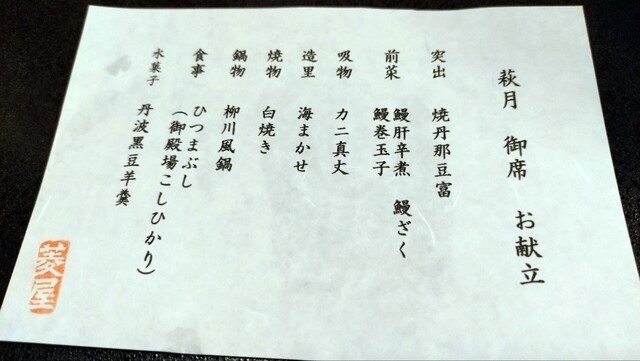 萩月 御席 お献立
突出 焼丹那豆富
前菜 鰻肝辛煮 鰻ざく
鰻巻玉子
吸物 カニ真丈
造里 海まかせ
焼物 白焼き
鍋物 柳川風鍋
食事 ひつまぶし
(御殿場こしひかり)
水菓子 丹波黒豆羊羹
菱屋